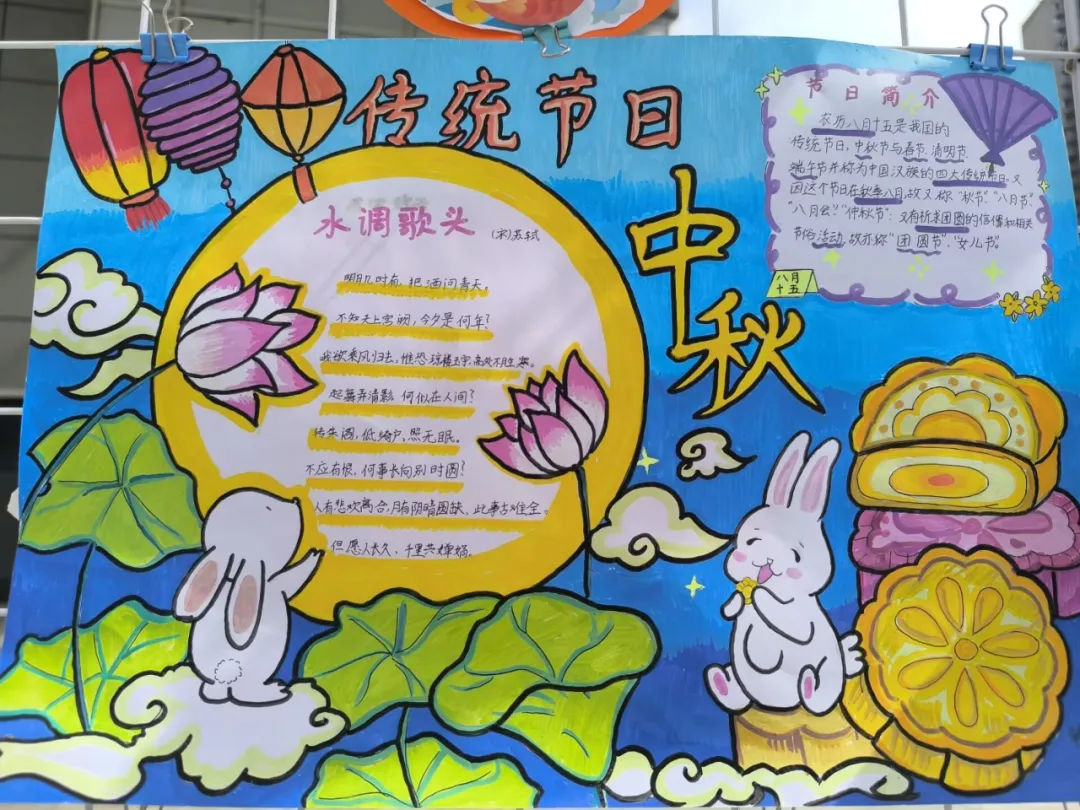 传统节日
中秋
水调歌头
(宋)苏轼
明月几时有,把酒问青天。
不知天上宫阙,今夕是何年?
我欲乘风归去,惟恐琼楼玉宇,高处不胜寒。
起舞弄清影,何似在人间?
转朱阁,低绮户,照无眠。
不应有恨,何事长向别时圆?
人有悲欢离合,月有阴晴圆缺,此事古难全。
但愿人长久,千里共婵娟。
节日简介
农历八月十五是我国的
传统节日,中秋节与春节、清明节、
端午节并称为中国汉族的四大传统节日。又
因这个节日在秋季八月,故又称“秋节”“八月节”、
“八月会”“仲秋节”;又有祈求团圆的信仰和相关
节俗活动,故亦称“团圆节”、“女儿节”。
八月
十五